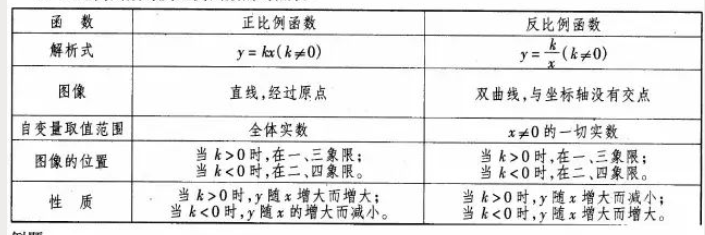 函 数 正比例函数 反比例函数
解析式 y=kx(k≠0) y=k/x(k≠0)
图像 直线,经过原点 双曲线,与坐标轴没有交点
自变量取值范围 全体实数 x≠0的一切实数
图像的位置 当 k>0时,在一、三象限; 当 k<0时,在二、四象限。 当 k>0时,在一、三象限; 当 k<0时,在二、四象限。
性 质 当 k>0时,y 随 x 增大而增大; 当 k<0时,y 随 x 的增大而减小。 当 k>0时,y 随 x 增大而减小; 当 k<0时,y 随 x 增大而增大。